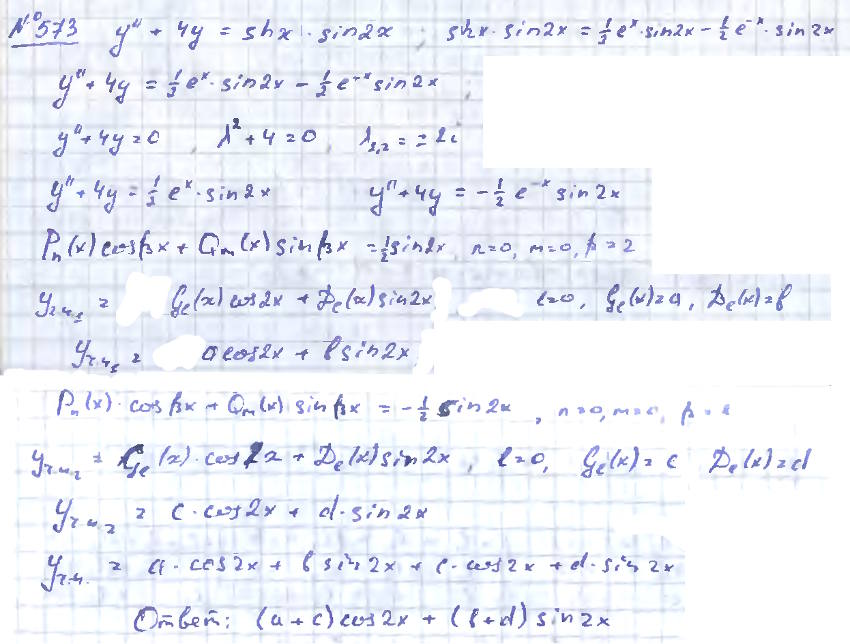 №573 y'' + 4y = shx · sin2x ; shx · sin2x = 1/2 e^x · sin2x − 1/2 e^-x · sin2x
y'' + 4y = 1/2 e^x · sin2x − 1/2 e^-x sin2x
y'' + 4y = 0 λ² + 4 = 0 λ₁,₂ = ±2i
y'' + 4y = 1/2 e^x · sin2x y'' + 4y = −1/2 e^-x sin2x
Pₙ(x)cosβx + Qₘ(x)sinβx = 1/2 sin2x, n=0, m=0, β=2
yч.н₁ = Gₑ(x)cos2x + Dₑ(x)sin2x l=0, Gₑ(x)=a, Dₑ(x)=b
yч.н₁ = a cos2x + b sin2x
Pₙ(x) · cosβx + Qₘ(x) sinβx = −1/2 sin2x, n=0, m=0, β=2
yч.н₂ = Gₑ(x) · cos2x + Dₑ(x)sin2x, l=0, Gₑ(x)=c Dₑ(x)=d
yч.н₂ = c · cos2x + d · sin2x
yч.н. = a · cos2x + b sin2x + c · cos2x + d · sin2x
Ответ: (a+c)cos2x + (b+d)sin2x